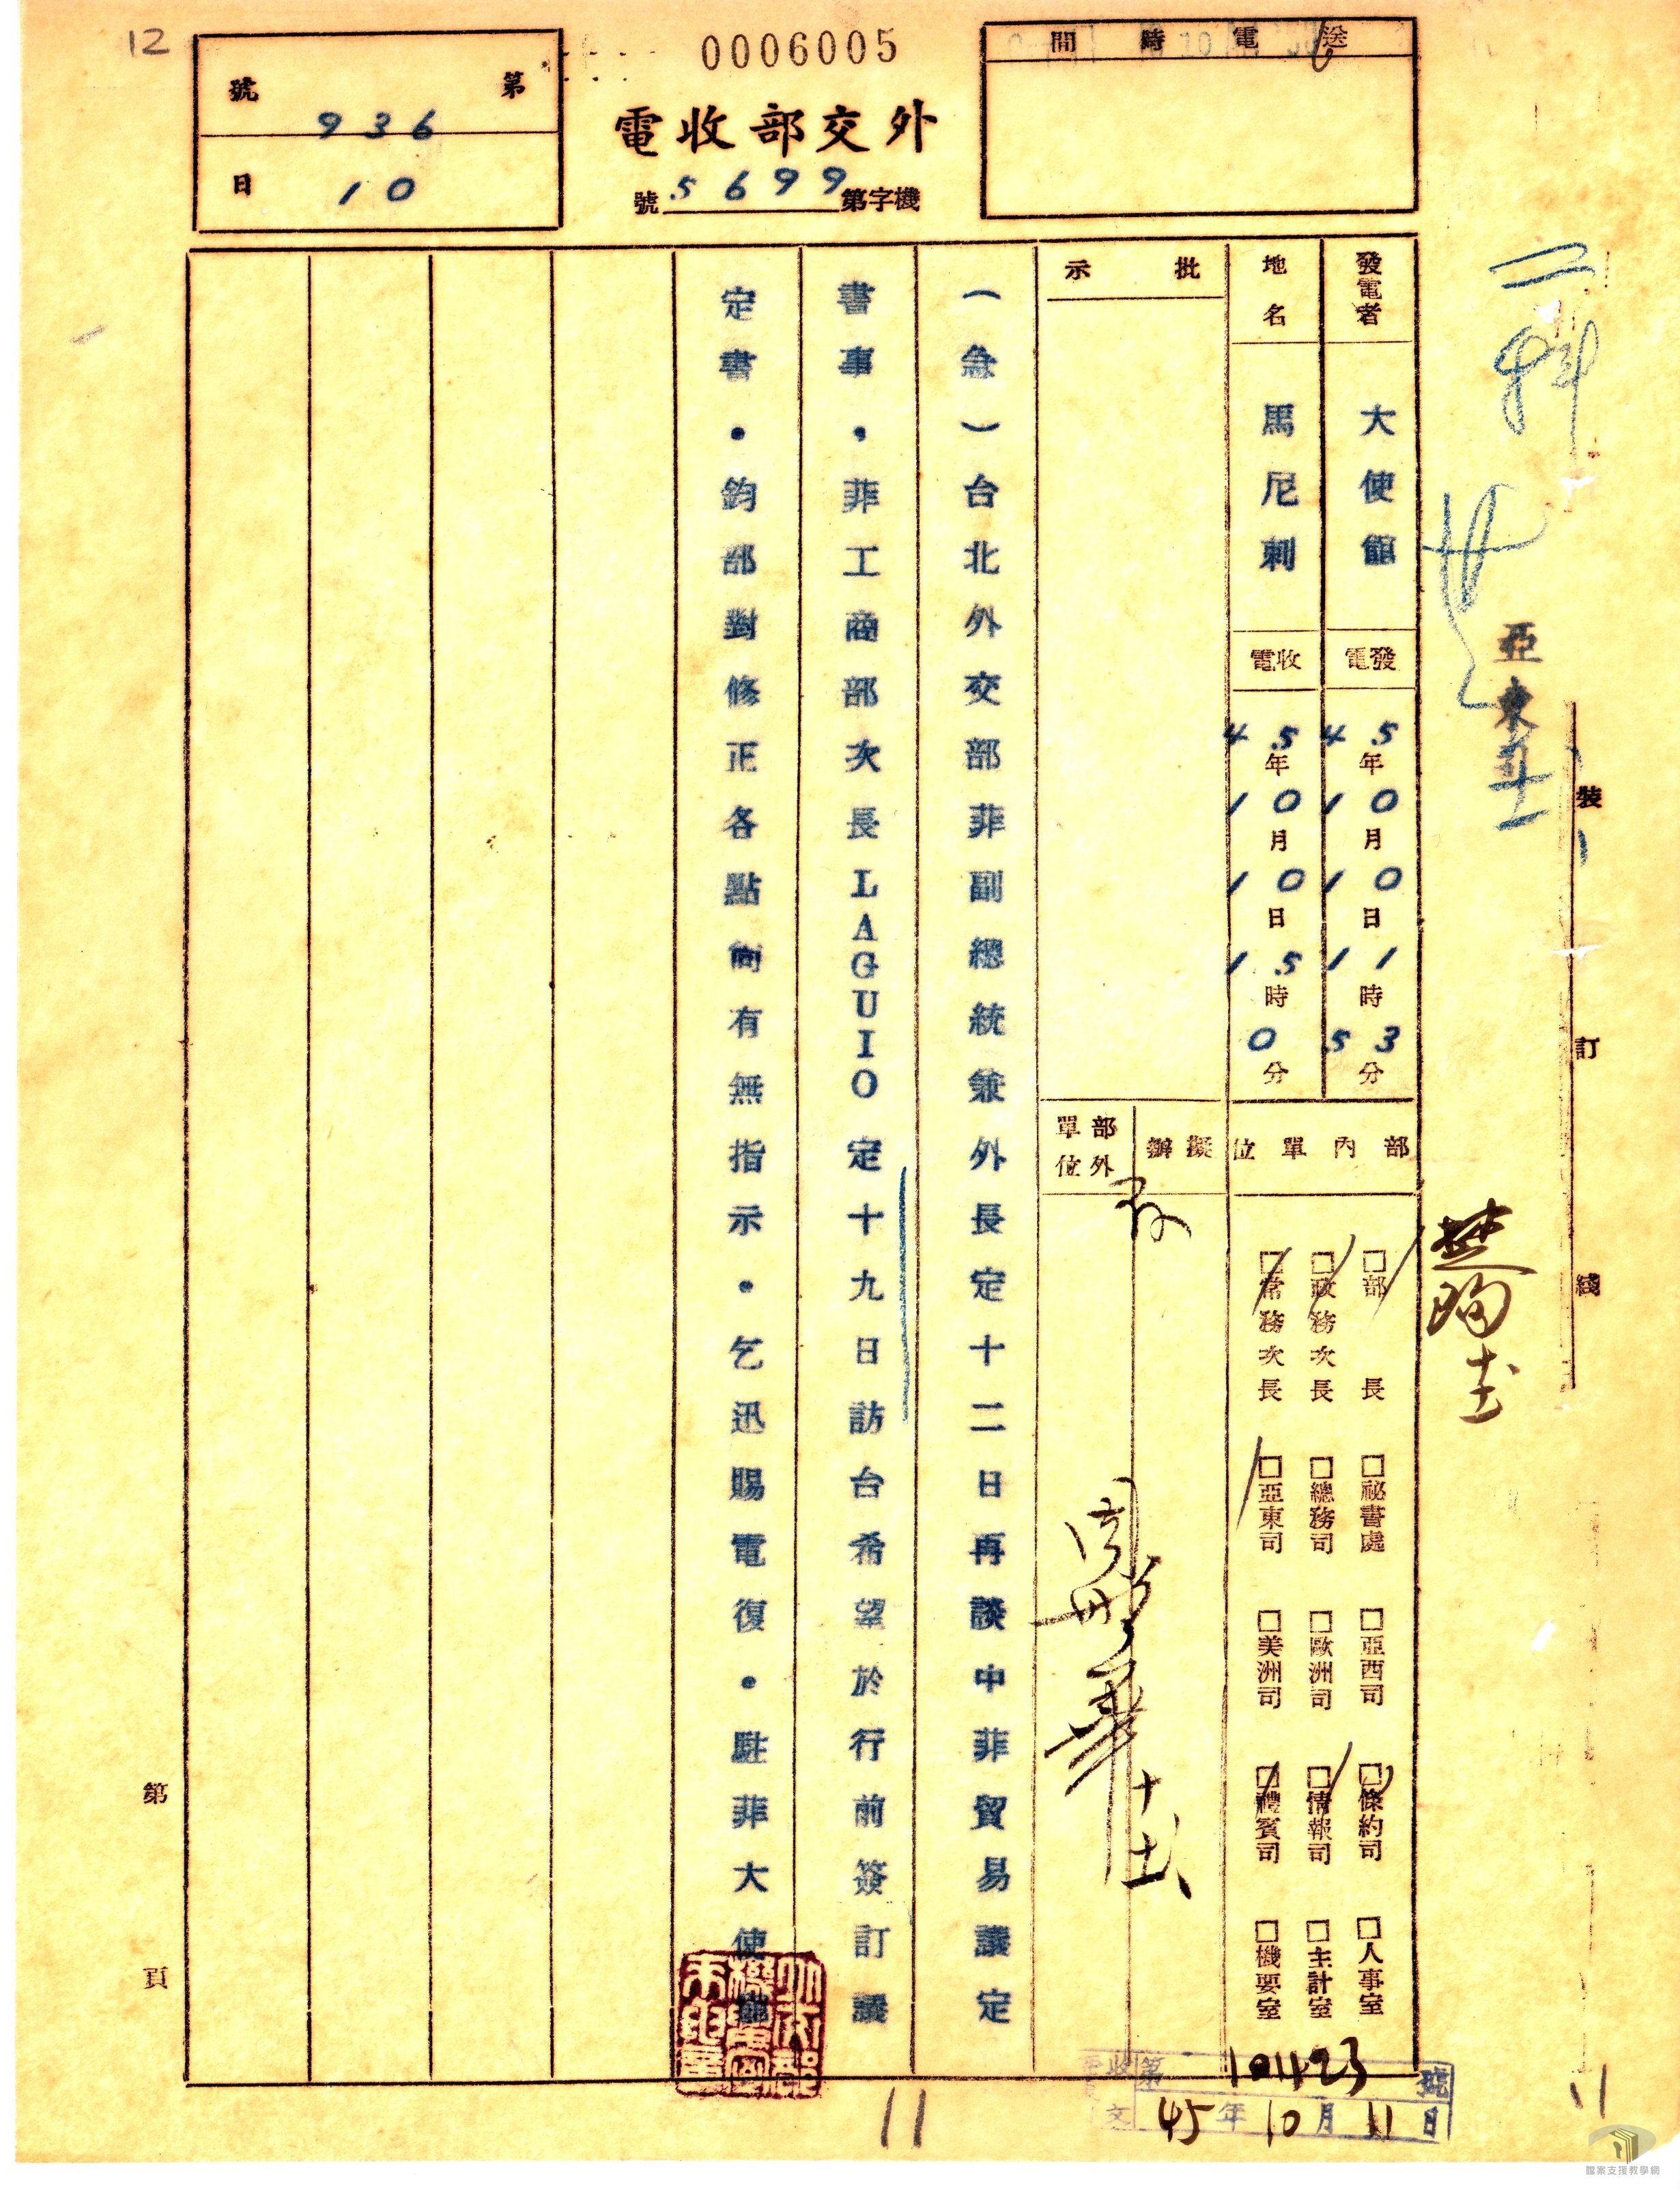 12
0006005
第
號
936
日
10
外交部收電
機字第5699號
送電時間
發電者
大使館
發電
45年10月10日11時53分
地名
馬尼剌
收電
45年10月10日15時0分
批示
部內單位
擬辦
部外單位
□部長
□政務次長
□常務次長
□祕書處
□總務司
□亞東司
□亞西司
□歐洲司
□美洲司
□條約司
□情報司
□禮賓司
□人事室
□主計室
□機要室
(急)台北外交部菲副總統兼外長定十二日再談中菲貿易議定
書事,菲工商部次長LAGUIO定十九日訪台希望於行前簽訂議
定書.鈞部對修正各點尚有無指示.乞迅賜電復.駐菲大使館
亞東
裝
訂
綫
第
頁
收文
第101423號
45年10月11日
11
11
檔案支援教學網